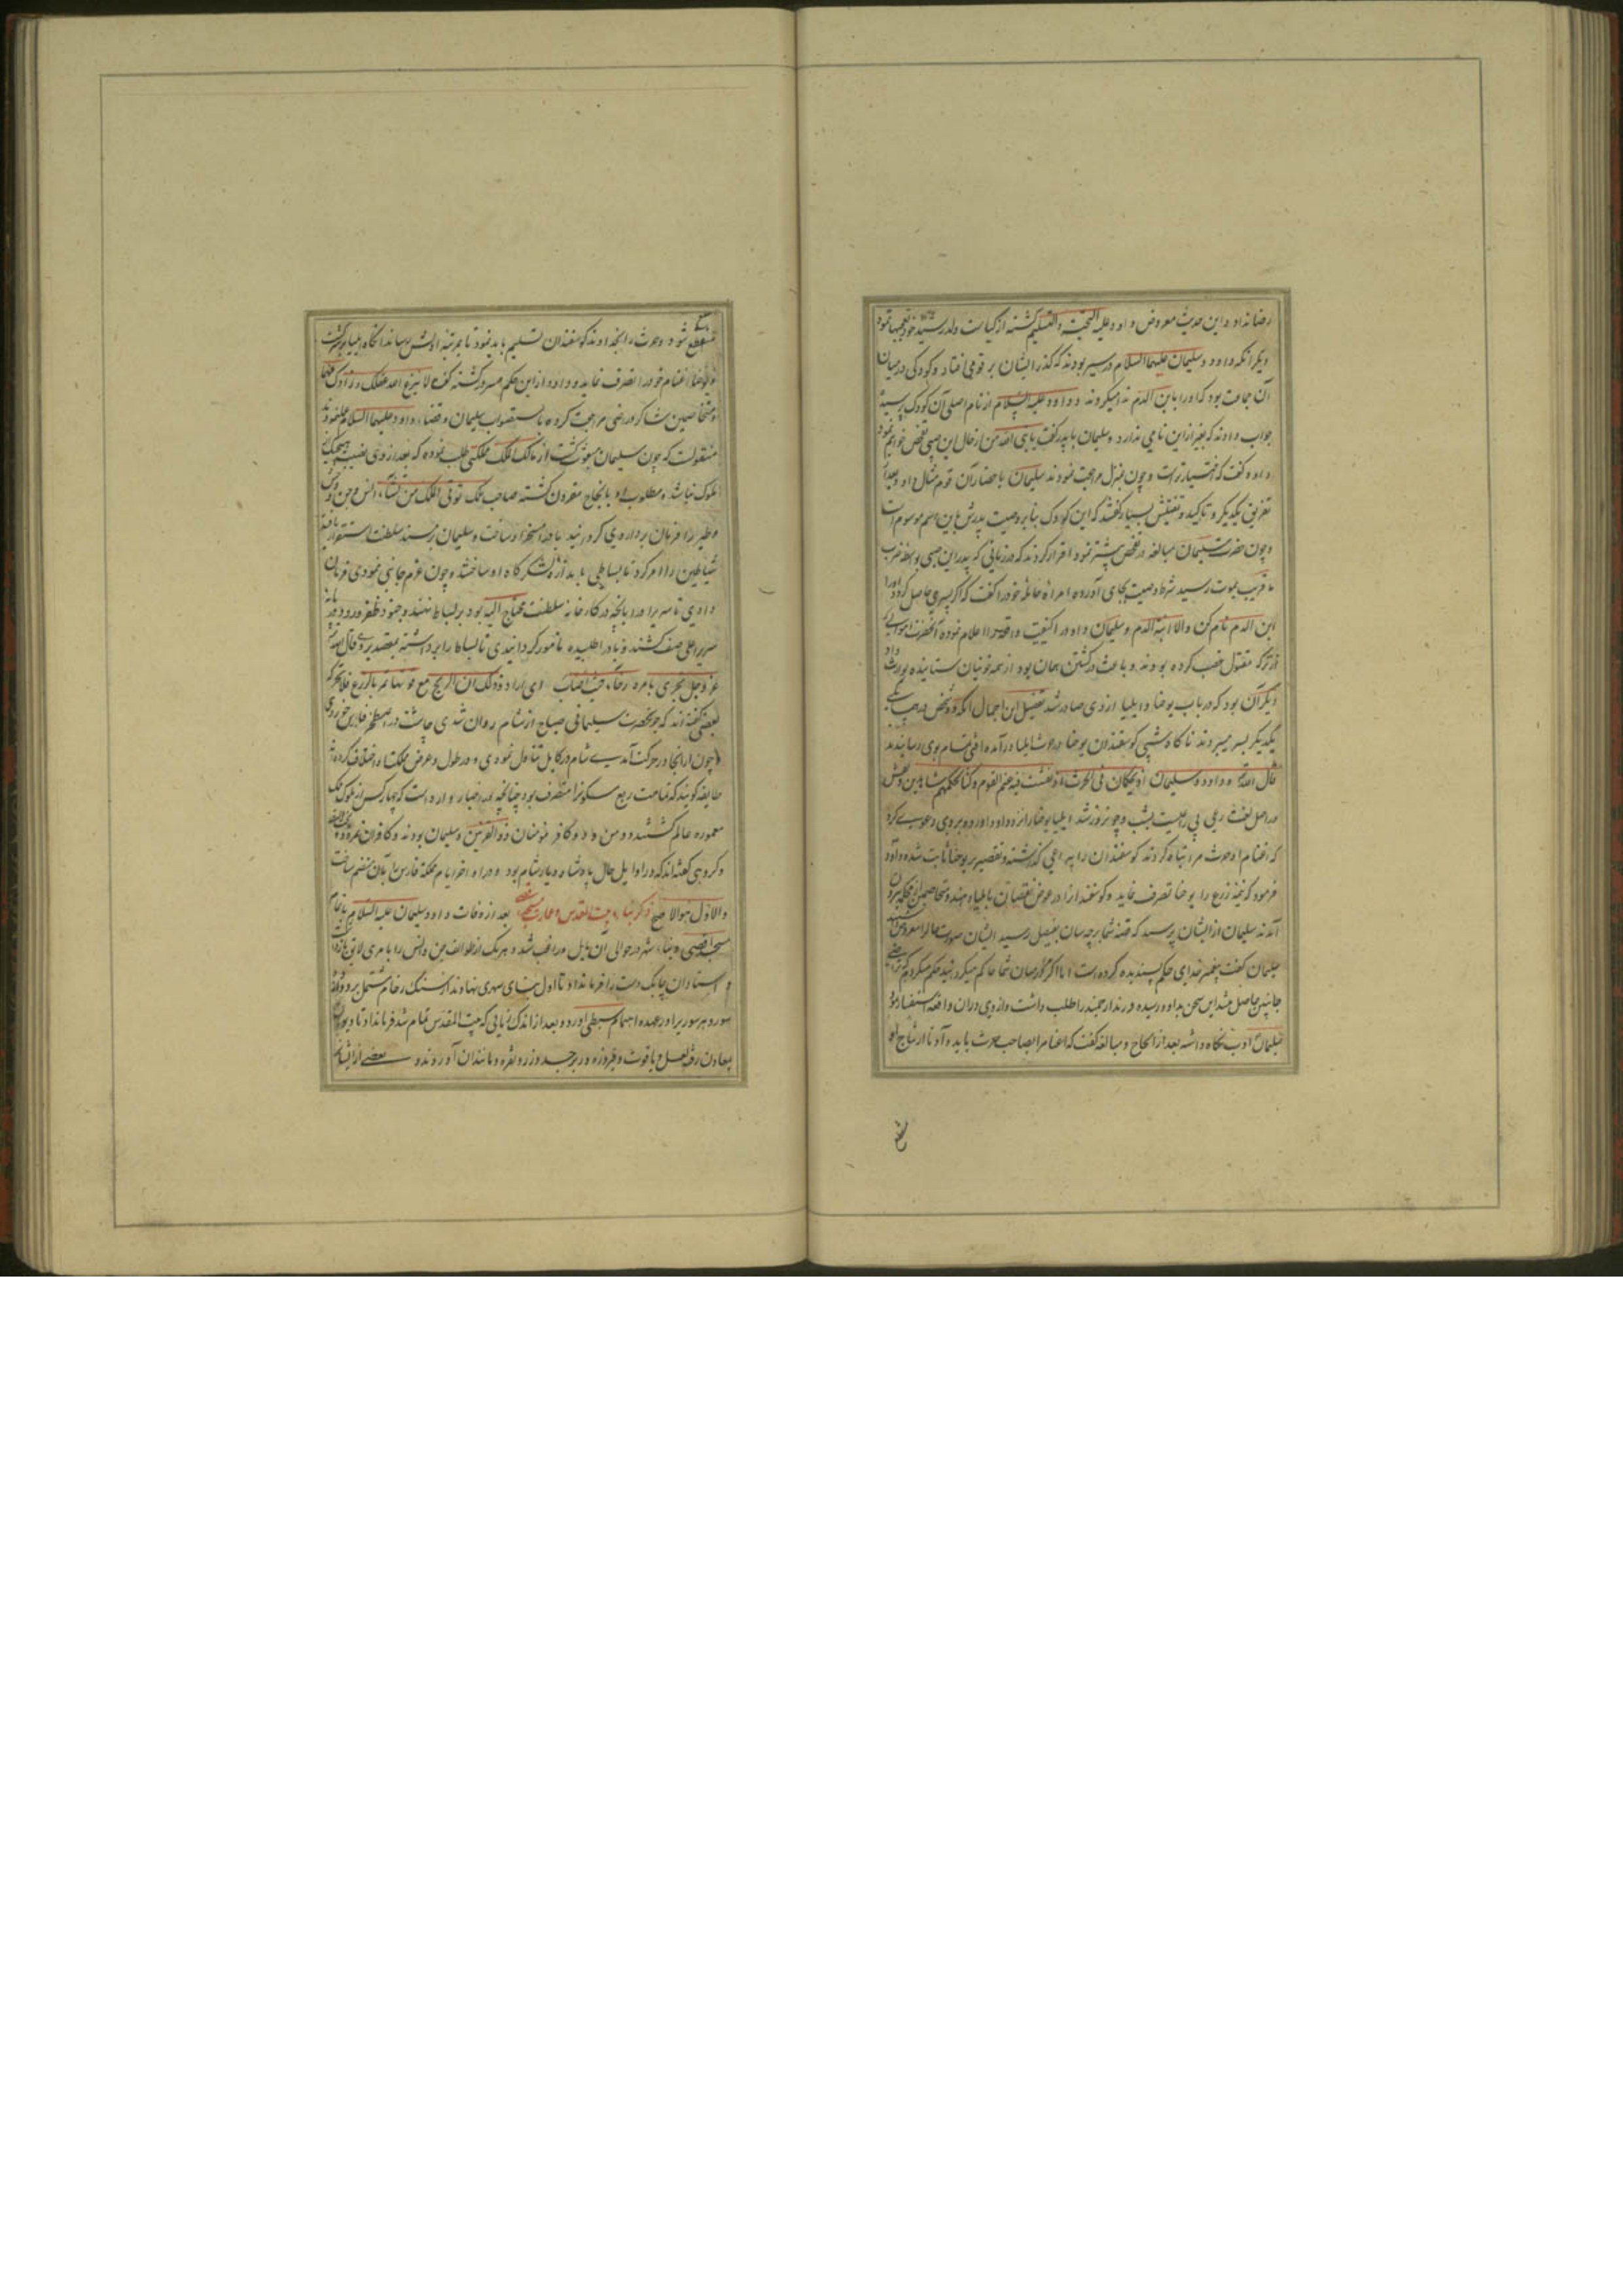 رضا نداد و این حدیث معروض داود علیه التحیته و التسلیم گشته از کیاست ولد رشید خود تعجبها نمود
دیگر آنکه داود و سلیمان علیهما السلام در سیر بودند که گذر ایشان بر قومی افتاد و کودکی در میان
آن جماعت بود که او را بابن الدم ندا میکردند و داود علیه السلام از نام اصلی آن کودک پرسید
جواب دادند که بغیر از این نامی ندارد و سلیمان با پدر گفت یا نبی الله من از حال این صبی تفحص خواهم نمود
داود گفت که اختیار تراست و چون بمنزل مراجعت نمودند سلیمان باحضار آن قوم مثال داد و بعد از
تفریق یکدیگر و تاکید و تفتیش بسیار گفتند که این کودک بنا بر وصیت پدرش باین اسم موسوم است
و چون حضرت سلیمان مبالغه در تفحص بیشتر نمود اقرار کردند که در زمانی که پدر این صبی بواسطه ضرب
ما قریب بموت رسید شرط وصیت بجای آورده امراه حامله خود را گفت که اگر پسری حاصل گردد او را
ابن الدم نام کن والا ابنة الدم و سلیمان داود را از کیفیت واقعه اعلام نموده آنحضرت اموالی که
از ترکه مقتول غصب کرده بودند و باعث در کشتن همان بود از همه خونیان ستانیده بوارث داد
دیگر آن بود که در باب یوحنا و ایلیا از وی صادر شد تفصیل این اجمال آنکه دو شخص در جنب
یکدیگر بسر میبردند ناگاه شبی گوسفندان یوحنا در حرث ایلیا درآمده آفتی تمام بوی رسانیدند
قال الله و داود و سلیمان اذ یحکمان فی الحرث اذ نفشت فیه غنم القوم و کنا لحکمهم شاهدین و نفش
در اصل لغت رعی بی راعیست بشب و چون روز شد ایلیا یوحنا را نزد داود آورده و بر وی دعوی کرد
که اغنام او حرث مرا تباه کردند گوسفندان را بی راعی گذاشته و تقصیر بر یوحنا ثابت شده داود
فرمود که تتمه زرع را یوحنا تصرف نماید و گوسفندان را در عوض نقصان بایلیا دهند و متخاصمین از محکمه بیرون
آمدند سلیمان از ایشان پرسید که قصه شما بر چه سان بفیصل رسید ایشان صورت حال را معروض داشتند
سلیمان گفت پیغمبر خدای حکم پسندیده کرده است اما اگر مرا در میان شما حاکم میکردانید حکم میکردم که
جانبین حاصل شد این سخن بداود رسیده فرزند ارجمند را طلب داشت و از وی در آن واقعه استفسار نمود
سلیمان ادب نگاه داشته بعد از الحاح و مبالغه گفت که اغنام را بصاحب حرث باید داد تا از نتاج او
منتفع شود و حرث را بخداوند گوسفندان تسلیم باید نمود تا بمرتبه اولش رساند آنگاه ایلیا
و یوحنا اغنام خود را تصرف نماید و داود از این حکم مسرور گشته گفت لا ینزع الله عقلک و زادک فهما
و متخاصمین شاکر و راضی مراجعت کرده
منقولست که چون سلیمان مبعوث گشت از مالک الملک مملکتی طلب نموده که بعد از وی نصیب هیچیک از
ملوک نباشد و مطلوب او بانجاح مقرون گشته صاحب ملک توتی الملک من تشاء انس و جن و وحش
و طیر را فرمان بردار وی گردانید و باد را مسخر او ساخت و سلیمان بر مسند سلطنت استقرار یافته
شیاطین را امر کرد تا بساطی باندازه لشکرگاه او ساختند و چون عزم جانبی نمودی فرمان
دادی تا سریر او را با آنچه در کارخانه سلطنت محتاج الیه بود بر بساط نهند و جنود ظفر ورود
سریر اعلی صف کشند و باد را طلبیده مامور گردانیدی تا بساط را برداشته بمقصد برد قال الله
عز و جل تجری بامره رخاء حیث اصاب ای اراد
بعضی گفته اند که چون حضرت سلیمانی صباح از شام روان شدی چاشت در اصطخر فارس خوردی
و چون از آنجا در حرکت آمدی شام در کابل تناول نمودی و در طول و عرض مملکت او اختلاف کرده اند
طایفه گویند که تمامت ربع مسکون را متصرف بود چنانچه در اخبار وارد است که چهار کس از ملوک مالک
معموره عالم گشتند دو مومن و دو کافر مومنان ذو القرنین و سلیمان بودند و کافران نمرود و
و گروهی گفته اند که در اوایل حال پادشاه دیار شام بود و در اواخر ایام مملکت فارس را بآن منضم ساخت
والاول هوالاصح ذکر بناء بیت المقدس و عمارت مسجد اقصی بعد از وفات داود سلیمان علیه السلام باتمام
مسجد اقصی و بناء شهر در حوالی آن مایل و راغب شد و هر یک از طوایف جن و انس را بامری لایق بازداشت
و استادان چابک دست را فرمان داد تا اول بنای شهری نهادند از سنگ رخام مشتمل بر دوازده
سور و هر سوری را در عهده اهتمام سبطی آورد و بعد از اندک زمانی که بیت المقدس تمام شد فرمان داد تا دیوان
بمعادن رفته لعل و یاقوت و فیروزه و زبرجد و زر و نقره و مانند آن آوردند و بعضی از ایشان